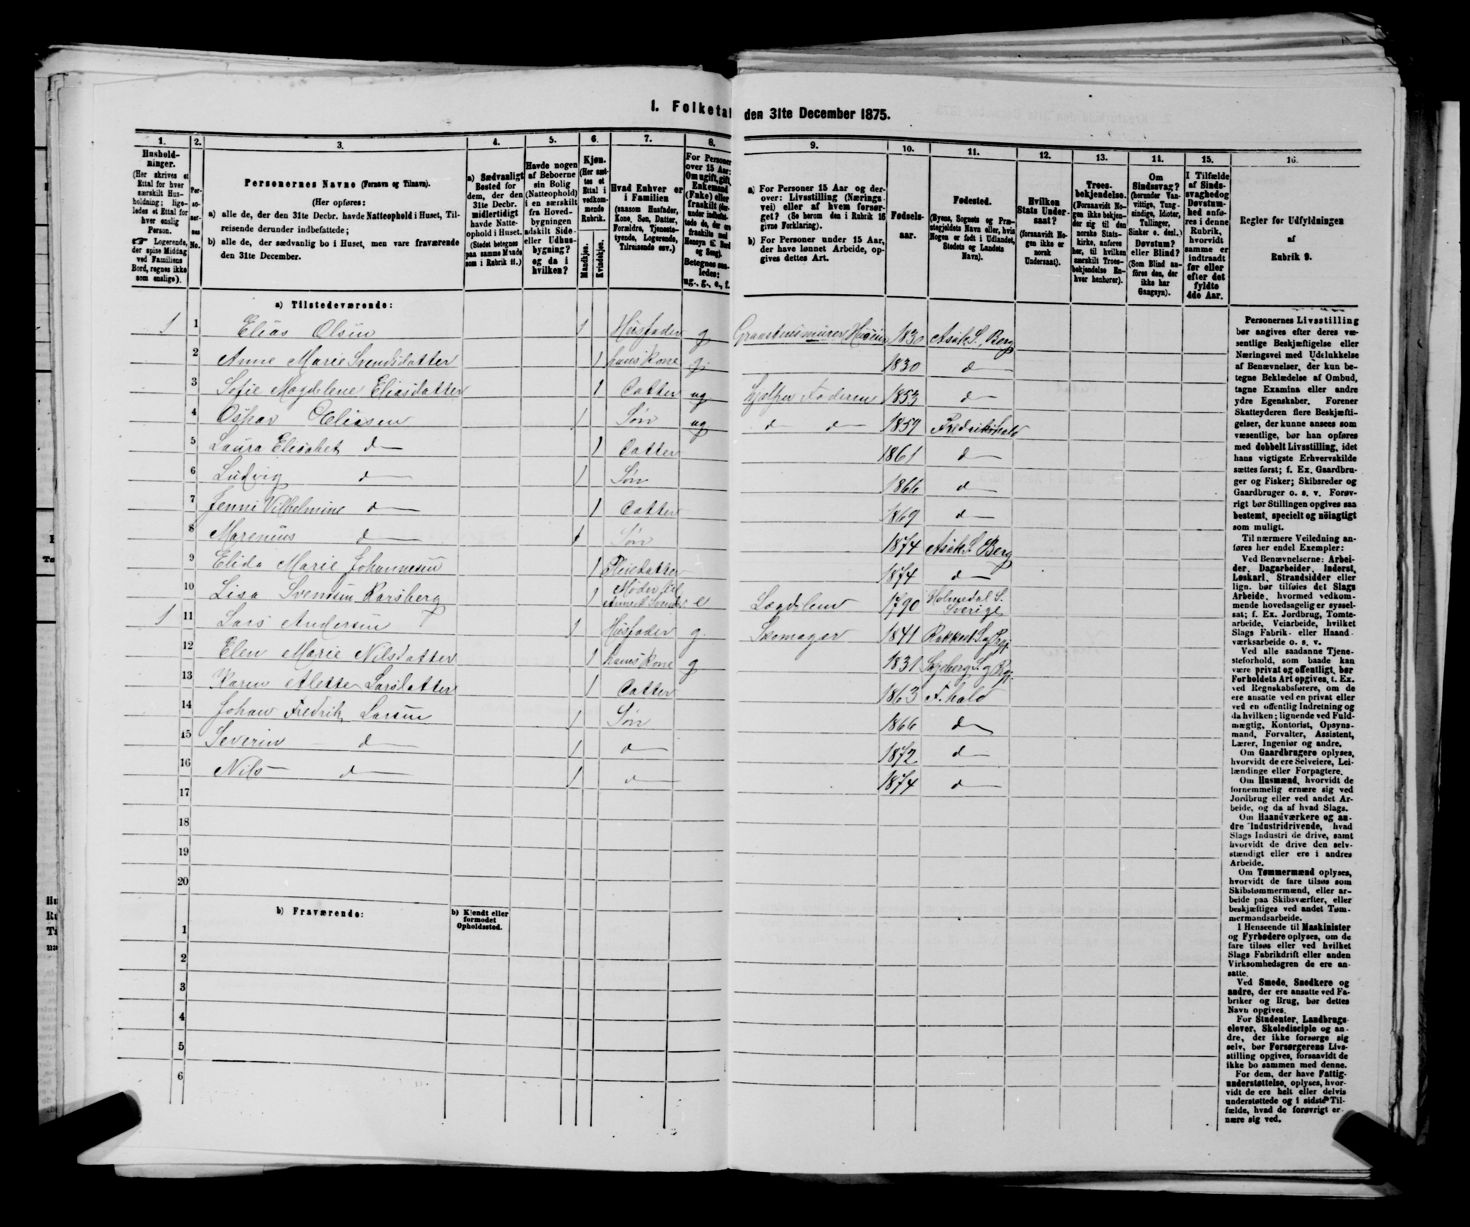 I. Folketal den 31te December 1875.
1. 2. 3. 4. 5. 6. 7. 8. 9. 10. 11. 12. 13. 14. 15. 16.
Husholdninger.
(Her skrives et Ettal for hver særskilt Husholdning; ligeledes et Ettal for hver enslig Person.
☞ Logerende, der spise Middag ved Familiens Bord, regnes ikke som enslige).
Personernes No.
Personernes Navne (Fornavn og Tilnavn).
(Her opføres:
a) alle de, der den 31te Decbr. havde Natteophold i Huset, Tilreisende derunder indbefattede;
b) alle de, der sædvanlig bo i Huset, men vare fraværende den 31te December.
a) Sædvanligt Bosted for dem, der den 31te Decbr. midlertidigt havde Natteophold i Huset.
(Stedet betegnes paa samme Maade som i Rubrik 11.)
Havde nogen af Beboerne sin Bolig (Natteophold) i en særskilt fra Hovedbygningen adskilt Side- eller Udhusbygning? og da i hvilken?
Kjøn.
(Her sættes et Ettal i vedkommende Rubrik.
Mandkjøn. Kvindekjøn.
Hvad Enhver er i Familien
(saasom Husfader, Kone, Søn, Datter, Forældre, Tjenestetyende, Logerende, Tilreisende osv.)
For Personer over 15 Aar: Om ugift, gift, Enkemand (Enke) eller fraskilt
Betegnes saaledes: ug., g., e., f.
a) For Personer 15 Aar og derover: Livsstilling (Næringsvei) eller af hvem forsørget? (Se herom den i Rubrik 16 givne Forklaring).
b) For Personer under 15 Aar, der have lønnet Arbeide, opgives dettes Art.
Fødselsaar.
Fødested.
(Byens, Sognets og Præstegjeldets Navn eller, hvis Nogen er født i Udlandet, Stedets og Landets Navn).
Hvilken Stats Undersaat?
(forsaavidt Nogen ikke er norsk Undersaat).
Troesbekjendelse.
(Forsaavidt Nogen ikke bekjender sig til den norske Statskirke, anføres her, til hvilken særskilt Troesbekjendelse Enhver henhører).
Om Sindssvag? (herunder Vanvittige, Tungsindige, Idioter, Tullinger, Sinker o. desl.) Døvstum? eller Blind? (Som Blind anføres den, der ikke har Gangsyn).
I Tilfælde af Sindssvaghed og Døvstumhed anføres i denne Rubrik, hvorvidt samme er indtraadt før eller efter det fyldte 4de Aar.
Regler for Udfyldningen af Rubrik 9.
a) Tilstedeværende:
1 1 Elias Olsen 1 Husfader g Graastensminerer Huseier 1830 Asak S. Berg
2 Anne Marie Svendsdatter 1 hans Kone g. 1830 d
3 Sofie Magdelene Eliasdatter 1 Datter ug hjælper Faderen 1853 d
4 Oskar Eliasen 1 Søn ug d d 1859 Fredrikshald
5 Laura Elisabet d 1 Datter 1861 d
6 Ludvig d 1 Søn 1866 d
7 Jenni Vilhelmine d 1 Datter 1869 d
8 Marenius d 1 Søn 1874 Asak S. Berg
9 Elida Marie Johannesen 1 Pleiedatter 1874 d
10 Lisa Svendsen Karsberg 1 Moder til Anne M Svendsd e Lægdslem 1790 Holmedal S. Sverige
1 11 Lars Andersen 1 Husfader g. Skomager 1841 Rakkestad S og Prgj
12 Elen Marie Nilsdatter 1 hans Kone g 1831
13 Karen Alette Larsdatter 1 Datter 1863 F. hald
14 Johan Fredrik Larsen 1 Søn 1866 d
15 Severin d 1 d 1872 d
16 Nils d 1 d 1874 d
17
18
19
20
b) Fraværende: b) Kjendt eller formodet Opholdssted.
1
2
3
4
5
6
Personernes Livsstilling bør angives efter deres væsentlige Beskjæftigelse eller Næringsvei med Udelukkelse af Benævnelser, der kun betegne Beklædelse af Ombud, tagne Examina eller andre ydre Egenskaber. Forener Skatteyderen flere Beskjæftigelser, der kunne ansees som væsentlige, bør han opføres med dobbelt Livsstilling, idet hans vigtigste Erhvervskilde sættes først; f. Ex. Gaardbruger og Fisker; Skibsreder og Gaardbruger o. s. v. Forøvrigt bør Stillingen opgives saa bestemt, specielt og nøiagtigt som muligt.
Til nærmere Veiledning anføres her endel Exempler:
Ved Benævnelserne: Arbeider, Dagarbeider, Inderst, Løskarl, Strandsidder eller lign. bør tilføies det Slags Arbeide, hvormed vedkommende hovedsagelig er sysselsat; f. Ex. Jordbrug, Tomtearbeide, Veiarbeide, hvilket Slags Fabrik- eller Haandværksarbeide o. s. v.
Ved alle saadanne Tjenesteforhold, som baade kan være privat og offentligt, bør Forholdets Art opgives, t. Ex. ved Regnskabsførere, om de ere ansatte ved en privat eller ved en offentlig Indretning og da hvilken; lignende ved Fuldmægtig, Kontorist, Opsynsmand, Forvalter, Assistent, Lærer, Ingeniør og andre.
Om Gaardbrugere oplyses, hvorvidt de ere Selveiere, Leilændinge eller Forpagtere.
Om Husmænd, hvorvidt de fornemmelig ernære sig ved Jordbrug eller ved andet Arbeide, og da af hvad Slags.
Om Haandværkere og andre Industridrivende, hvad Slags Industri de drive, samt hvorvidt de drive den selvstændigt eller ere i andres Arbeide.
Om Tømmermænd oplyses, hvorvidt de fare tilsøs som Skibstømmermænd, eller arbeide paa Skibsværfter, eller beskjæftiges ved andet Tømmermandsarbeide.
I Henseende til Maskinister og Fyrbødere oplyses, om de fare tilsøs eller ved hvilket Slags Fabrikdrift eller anden Virksomhedsgren de ere ansatte.
Ved Smede, Snedkere og andre, der ere ansatte ved Fabriker og Brug, bør dettes Navn opgives.
For Studenter, Landbrugselever, Skoledisciple og andre, der ikke forsørge sig selv, bør Forsørgerens Livsstilling opgives, forsaavidt de ikke bo sammen med denne.
For dem, der have Fattigunderstøttelse, oplyses, hvorvidt de ere helt eller delvis understøttede og i sidste Tilfælde, hvad de forøvrigt ernære sig ved.